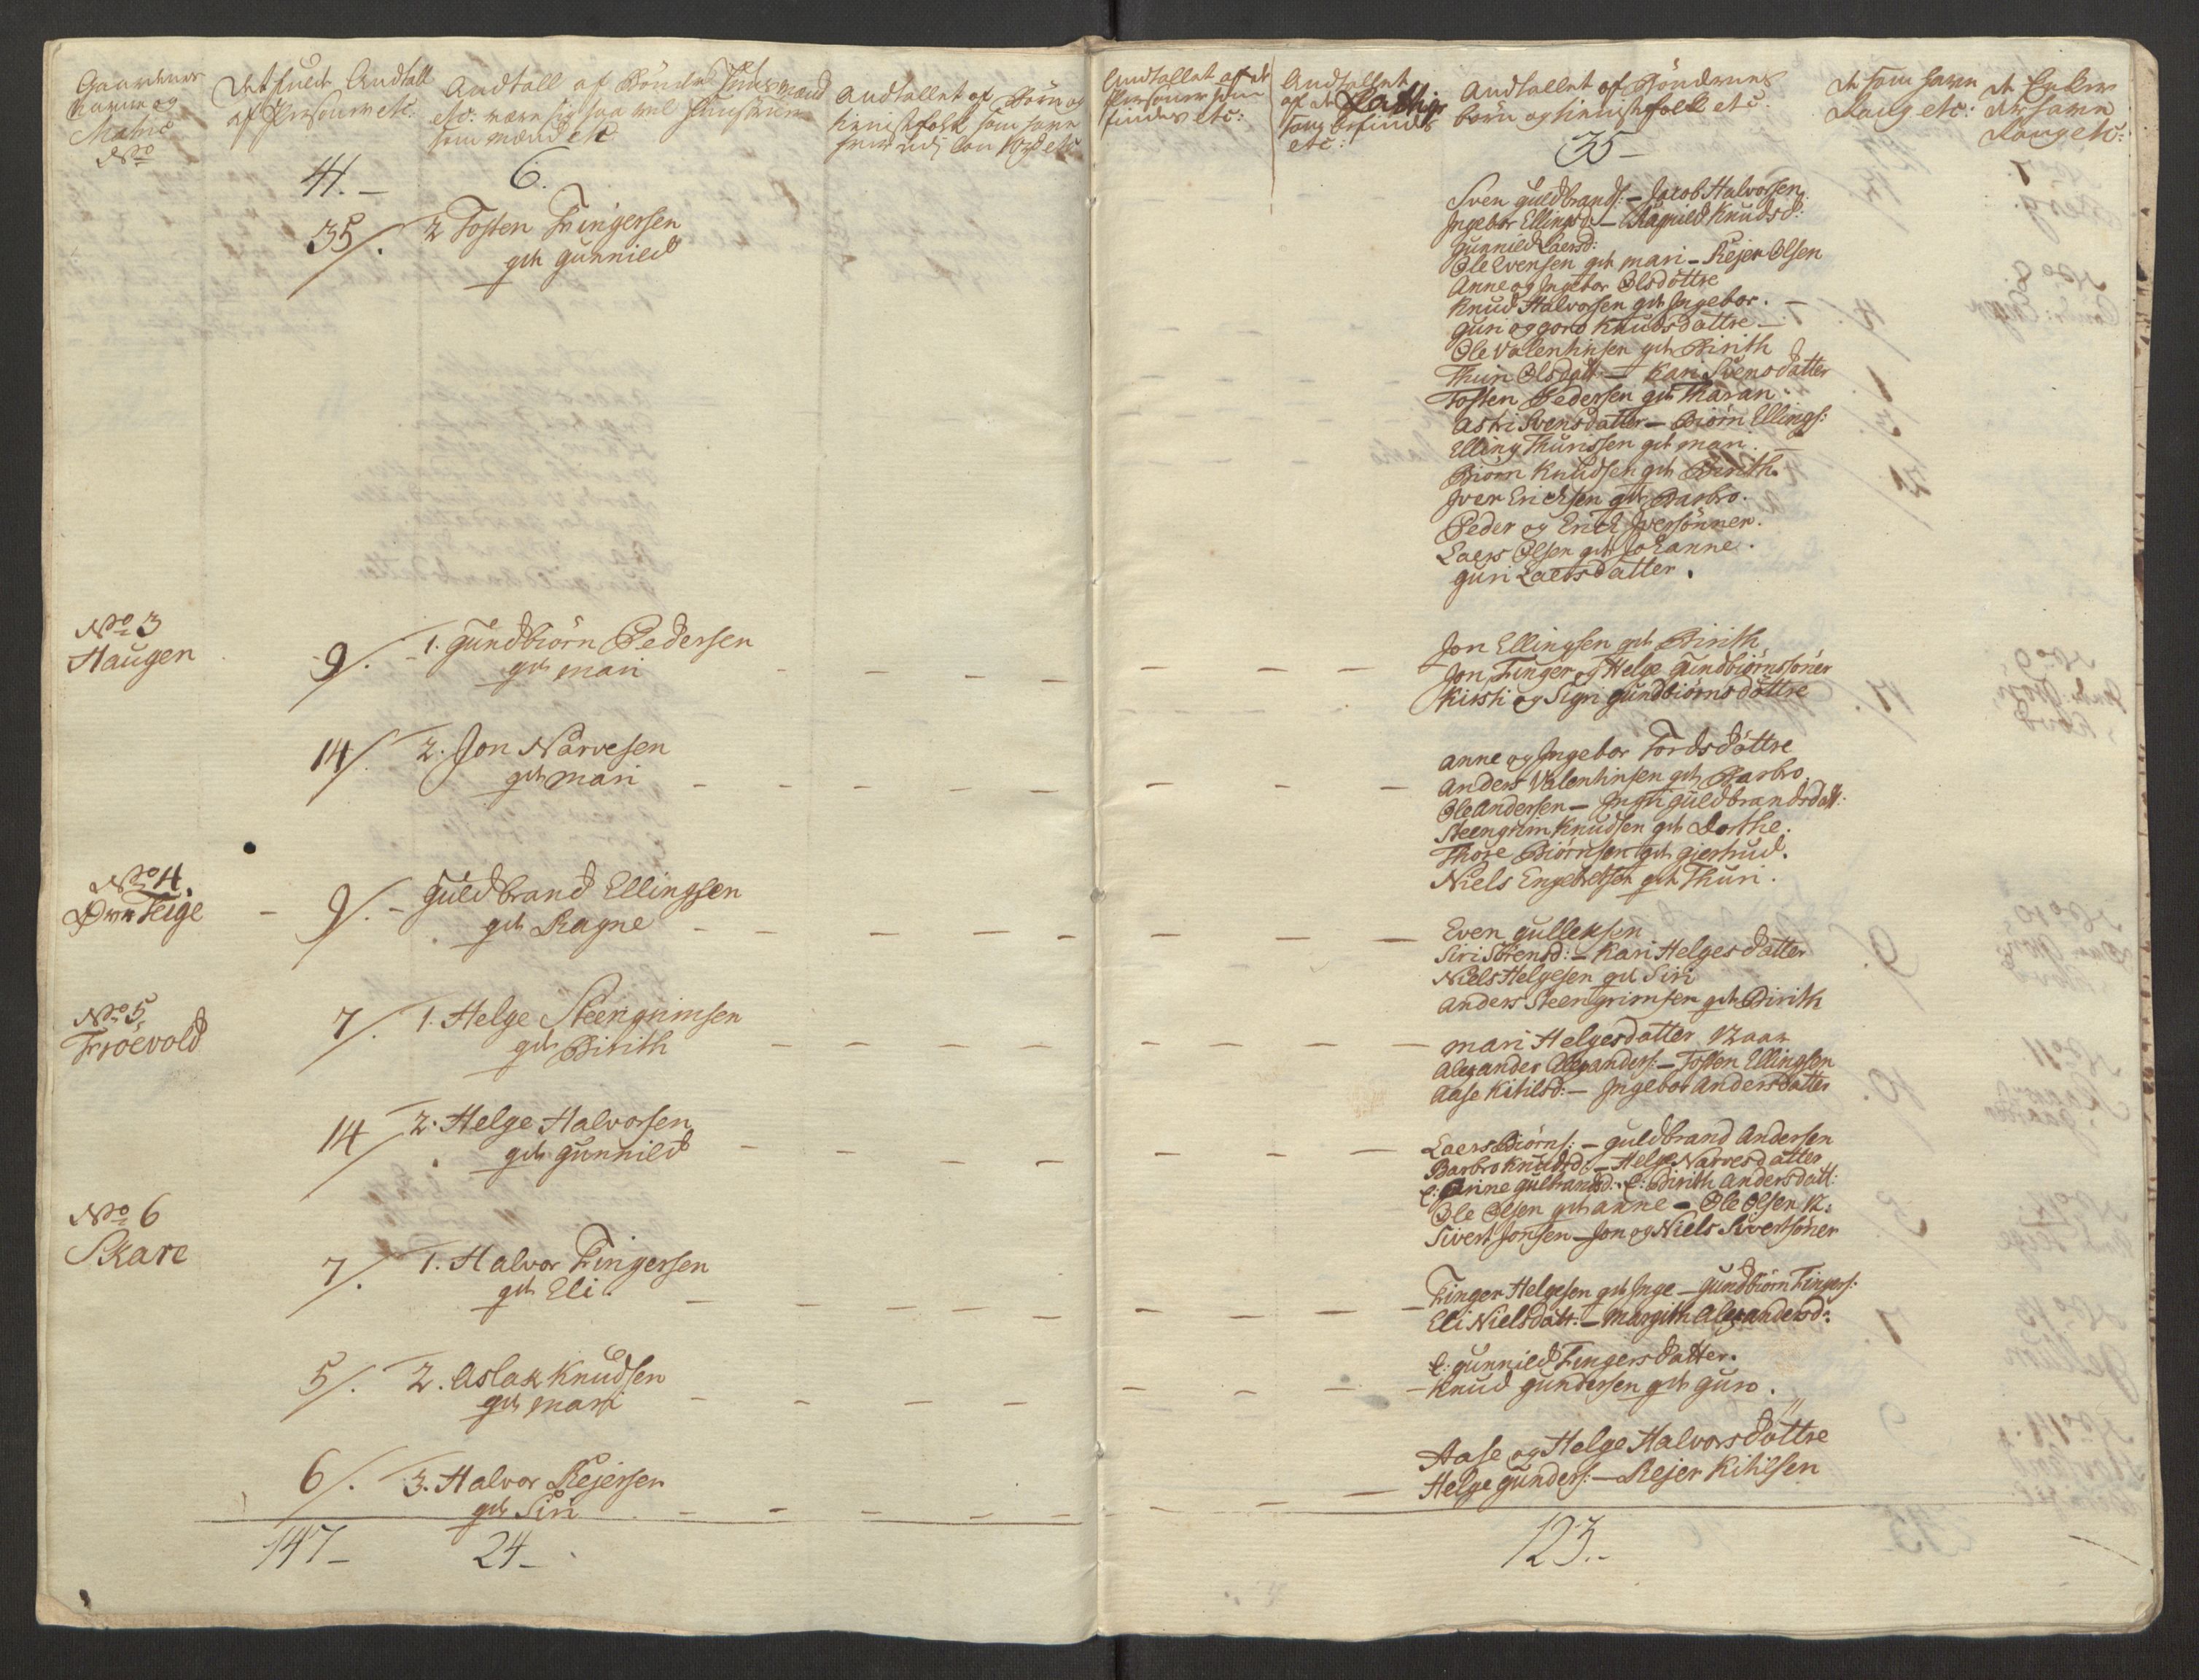 Gaardenes
Nafne og
Matric
No
Det fulde Andtall
af Personer etc:
Andtall af Bönder Huusmænd
etc: være sig saa vel Huusmænd
som mænd etc
Andtallet af Börn og
tienistefolk som have
etc
Andtallet af de
Personer som
findes etc:
Andtallet
af de Fattige
som befindes
etc:
Andtallet af Böndernes
börn og tienistfolk etc:
de som have
Rang etc:
de Enker
der have
Rang etc:
41.—
6.
35—
35/.
2 Tosten Fingersen
gift Gunnild
Sven Guldbrands:— Jacob Halvorsen
Ingebor Ellingsd:— Ragnild Knudsd:
Gunnild Laersd:
Ole Evensen gift mari — Rejer Olsen
Anne og Ingebor Olsdöttre
Knud Halvorsen gift Ingebor.—
Guri og Goro Knudsdattre—
Ole Valentinsen gift Birith
Thuri Olsdatt:— Kari Svensdatter
Tosten Pedersen gift Tharan
Astri Svensdatter— Biörn Ellings:
Elling Thurissen gift mari
Biörn Knudsen gift Birith.
Iver Erichsen gift Barbro.
Peder og Erich Iversönner.
Laers Olsen gift Johanne.
Guri Laersdatter.
No 3
Haugen
9/.
1. Gundbiörn Pedersen
gift mari
Jon Ellingsen gift Birith
Jon, Finger og Helge Gundbiörnssöner
Kirsti og Sigri Gundbiörnsdöttre
14/.
2. Jon Narvesen
gift mari
anne og Ingebor Tordsdöttre
Anders Valentinsen gift Barbro.
Ole Andersen— Ingri Guldbrandsdatt:
Steengrim Knudsen gift Dorthe.
Thore Biörnsen gift giertrud.
Niels Engebretsen gift Thuri.
No 4.
Övre Teige
9/.
Guldbrand Ellingsen
gift Ragne
Even Gulleksen
Siri Sörensd:— Kari Helgesdatter
Niels Helgesen gift Siri
Anders Steengrimsen gift Birith
No 5
Fröevold
7/.
1. Helge Steengrimsen
gift Birith
mari Helgesdatter 12 aar
Alexander Alexanders:— Tosten Ellingsen
Aase Kitilsd:— Ingebor Andersdatter
14/
2. Helge Halvorsen
gift Gunnild
Laers Biörns:— Guldbrand Andersen
Barbro Knudsd:— Helge Narvesdatter
E: Anne Gulbransd:. E: Birith Andersdatt:
Ole Olsen gift anne — Ole Olsen 12:
Sivert Jonsen — Jon og Niels Sivertsöner
No 6
Skare
7/.
1. Halvor Fingersen
gift Eli.
Finger Helgesen gift Inge — Gundbiörn Fingers:
Eli Nielsdatt:— Margith Alexandersd:.
5/.
2. Aslak Knudsen
gift mari
E: Gunnild Fingersdatter.
Knud Gundersen gift Guro.
6/.
3. Halvor Rejersen
gift Siri
Aase og Helge Halvorsdöttre
Helge Gunders:— Rejer Kitilsen
147—
24—
123.—